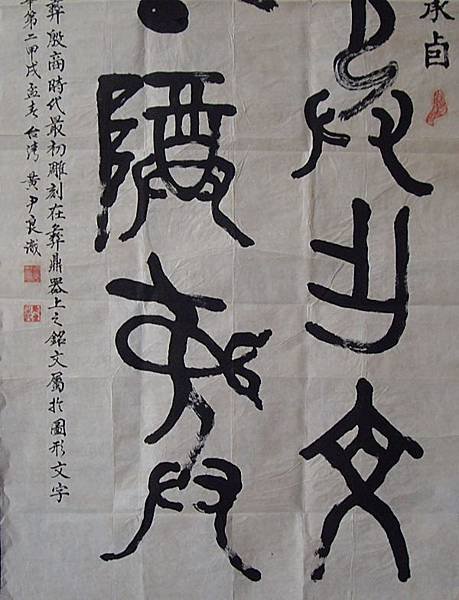 承卣
乍文
尊彝
彝殷商時代最初雕刻在彝鼎器上之銘文屬於圖形文字
年第二甲戌孟台灣黃尹良識